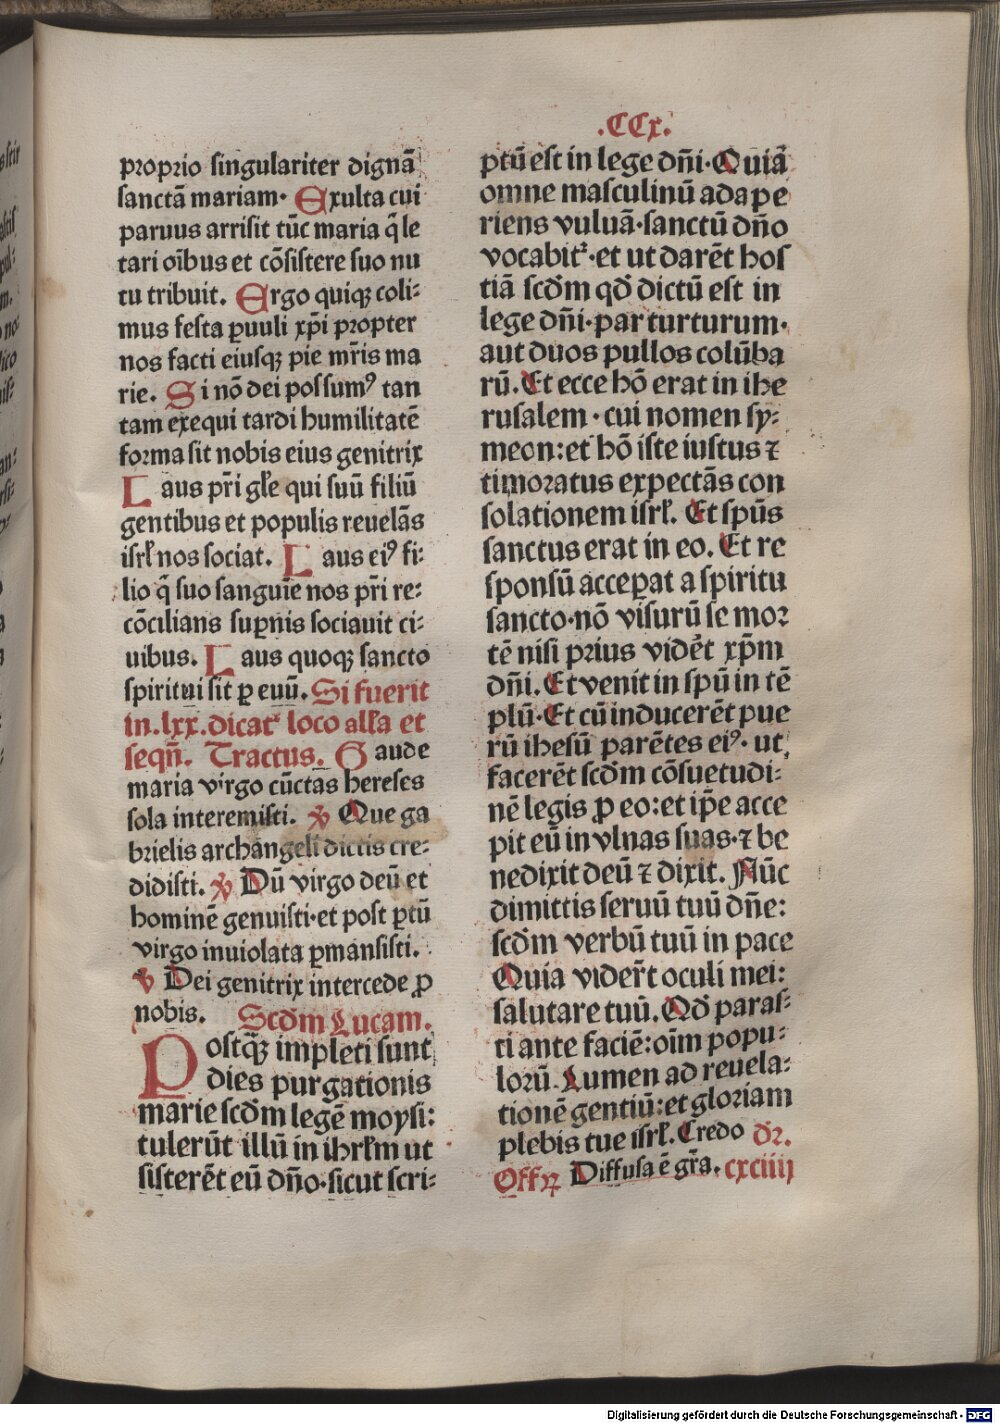 .CCx.
proprio singulariter dignā
sanctā mariam· Exulta cui
paruus arrisit tūc maria q̄ le
tari oībus et cōsistere suo nu
tu tribuit. Ergo quiqꝫ coli:
mus festa ꝑuuli xp̄i propter
nos facti eiusqꝫ pie mr̄is ma
rie. Si nō dei possumꝰ tan
tam exequi tardi humilitatē
forma sit nobis eius genitrix
Laus pr̄i gl̄e qui suū filiū
gentibus et populis reuelās
isrl̄ nos sociat. Laus eiꝰ fi:
lio q̄ suo sanguīe nos pr̄i re:
cōcilians suꝑnis sociauit ci:
uibus. Laus quoqꝫ sancto
spiritui sit ꝑ euū. Si fuerit
in .lxx. dicat᷑ loco all̄a et
seqn̄. Tractus. Gaude
maria virgo cūctas hereses
sola interemisti. ℣ Que ga
brielis archangeli dictis cre:
didisti. ℣ Dū virgo deū et
hominē genuisti·et post ꝑtū
virgo inuiolata ꝑmansisti.
℣ Dei genitrix intercede ꝓ
nobis. Scd̄m Lucam.
Postqꝫ̄ impleti sunt
dies purgationis
marie scd̄m legē moysi:
tulerūt illū in ihrl̄m ut
sisterēt eū dn̄o·sicut scri:
ptū est in lege dn̄i·Quiā
omne masculinū adape
riens vuluā·sanctū dn̄o
vocabit᷑·et ut darēt hos
tiā scd̄m qd̄ dictū est in
lege dn̄i·par turturum·
aut duos pullos colūba
rū. Et ecce hō erat in ihe
rusalem·cui nomen sy:
meon:et hō iste iustus ⁊
timoratus expectās con
solationem isrl̄. Et spūs
sanctus erat in eo. Et re
sponsū acceꝑat a spiritu
sancto·nō visurū se mor
tē nisi prius vidēt xp̄m
dn̄i. Et venit in spū in tē
plū·Et cū inducerēt pue
rū ihesū parētes eiꝰ· ut
facerēt scd̄m cōsuetudi:
nē legis ꝓ eo:et ip̄e acce
pit eū in vlnas suas·⁊ be
nedixit deū ⁊ dixit. Nūc
dimittis seruū tuū dn̄e:
scd̄m verbū tuū in pace
Quia vider̄t oculi mei:
salutare tuū. Qd̄ paras:
ti ante faciē:oīm popu:
lorū. Lumen ad reuela:
tionē gentiū:et gloriam
plebis tue isrl̄. Credo dr̄.
Offꝝ Diffusa ē gr̄a. cxciiij
Digitalisierung gefördert durch die Deutsche Forschungsgemeinschaft - DFG